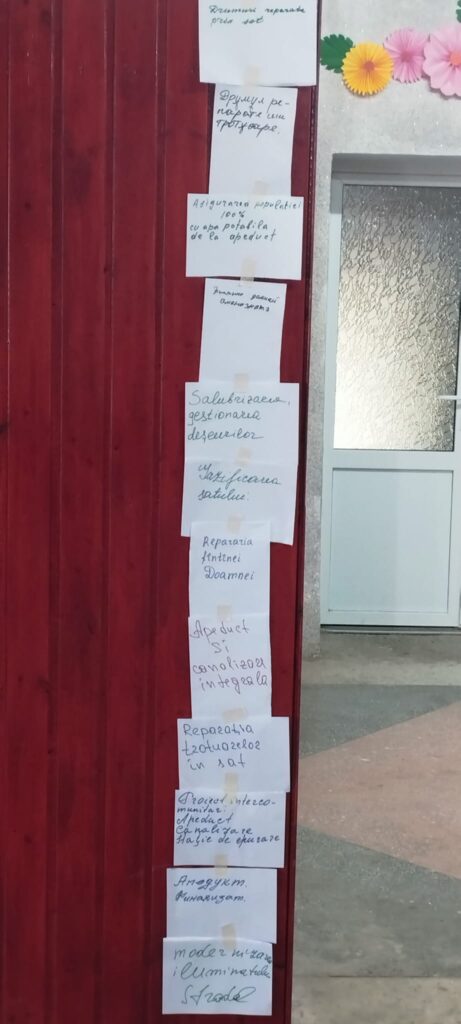 Drumuri reparate
prin sat
Друмул ре-
парате ши
тротуаре.
Asigurarea populatiei
100%
cu apa potabila
de la apeduct
Salubrizarea,
gestionarea
deseurilor
Gazificarea
satului.
Repararia
fîntinei
Doamnei
Apeduct
si
canalizare
integrala
Reparatia
trotuarelor
in sat
Proiect interco-
munitar:
Apeduct
Canalizare
Stație de epurare
Апедукт.
modernizarea
iluminatului
stradal